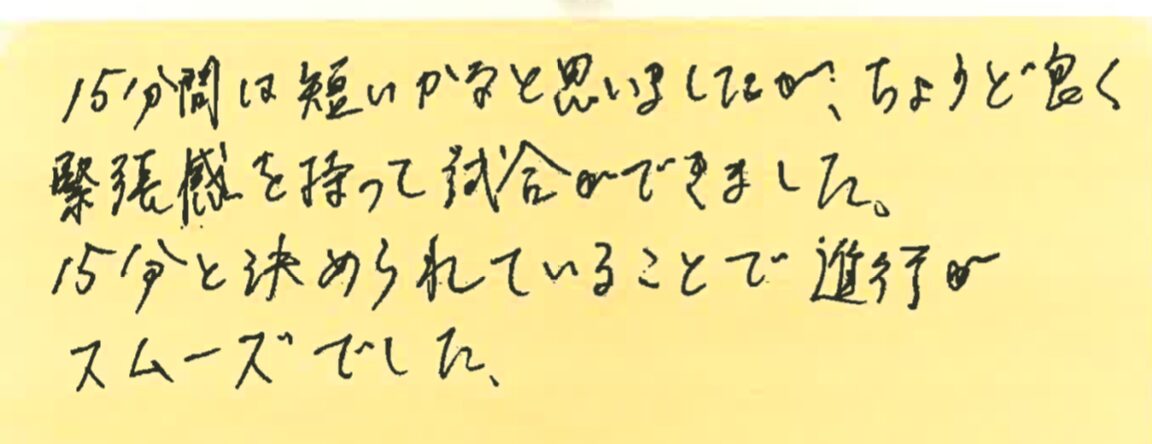 15分間は短いかなと思いましたが、ちょうど良く
緊張感を持って試合ができました。
15分と決められていることで進行が
スムーズでした、